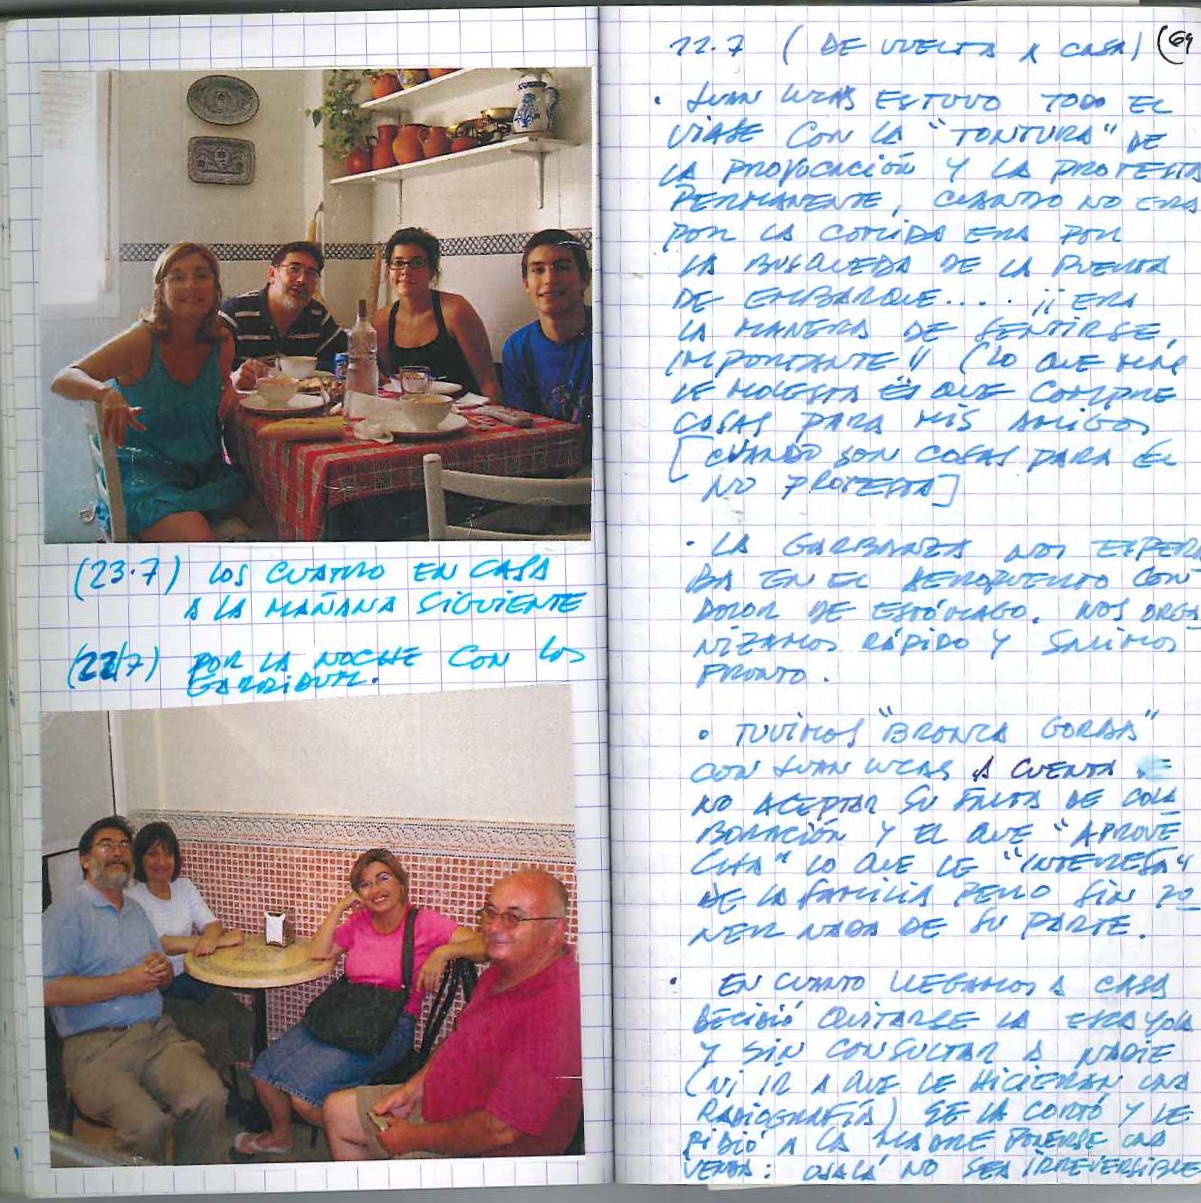 (23.7) LOS CUATRO EN CASA
A LA MAÑANA SIGUIENTE
(22/7) POR LA NOCHE CON LOS
22.7 (DE VUELTA A CASA) (69
· JUAN LUCAS ESTUVO TODO EL
VIAJE CON LA "TONTURA" DE
LA PROVOCACIÓN Y LA PROTESTA
PERMANENTE, CUANDO NO ERA
POR LA COMIDA ERA POR
LA BUSQUEDA DE LA PUERTA
DE EMBARQUE.... ¡¡ERA
LA MANERA DE SENTIRSE
IMPORTANTE!! (LO QUE MÁS
LE MOLESTA ES QUE COMPRE
COSAS PARA MIS AMIGOS
[CUANDO SON COSAS PARA ÉL
NO PROTESTA]
· LA GARBANZA NOS ESPERA
BA EN EL AEROPUERTO CON
DOLOR DE ESTÓMAGO. NOS ORGA
NIZAMOS RÁPIDO Y SALIMOS
PRONTO.
· TUVIMOS "BRONCA GORDA"
CON JUAN LUCAS A CUENTA DE
NO ACEPTAR SU FALTA DE COLA
BORACIÓN Y EL QUE "APROVE
CHA" LO QUE LE "INTERESA"
DE LA FAMILIA PERO SIN PO
NER NADA DE SU PARTE.
· EN CUANTO LLEGAMOS A CASA
DECIDIÓ QUITARSE LA ESCAYOLA
Y SIN CONSULTAR A NADIE
(NI IR A QUE LE HICIERAN UNA
RADIOGRAFÍA) SE LA CORTÓ Y LE
PIDIÓ A LA MADRE PONERSE UNA
VENDA: OJALÁ NO SEA IRREVERSIBLE